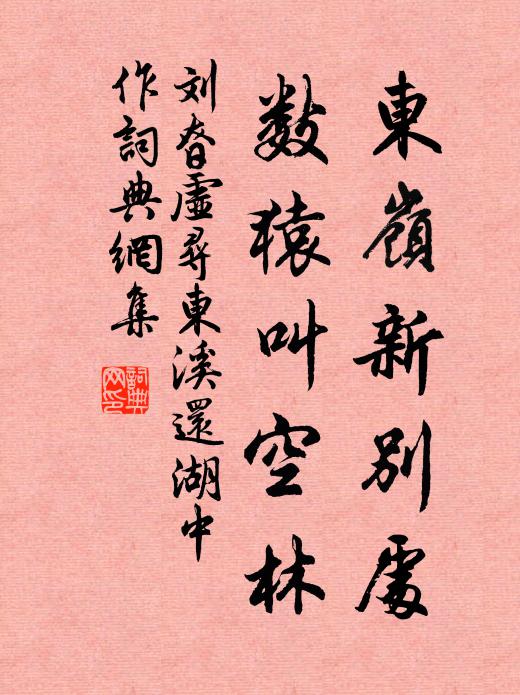 東嶺新別處
數猿叫空林
刘眘虛尋東溪還湖中
作詞典網集
詞典網印